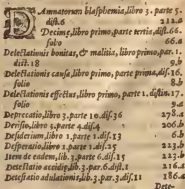 DAmnatorum blasphemia, libro 3. parte 5.
dist.6 212.a
Decime, libro primo, parte tertia, dist.66.
folio 66.a
Delectationis bonitas, & malitia, libro primo, par. 1.
dist. 18 9.b
Delectationis causa, libro primo, parte prima, dist. 16
folio 8.b
Delectationis effectus, libro primo, parte 1. distin. 17.
folio 9.a
Deprecatio, libro 3. parte 10. dis. 36 278.a
Derisio, libro 3. parte 4. dis. 4 206.b
Desiderium, libro 1. parte 1. dis. 13 6.b
Desperatio, libro 1. parte 1. dis. 25
Item de eadem, lib. 3. parte 6. dis. 15
Detestatio accidię, lib. 3. par. 6. dist. 1
Detestatio adulationis, lib. 3. par. 3. dis. 11 186.a